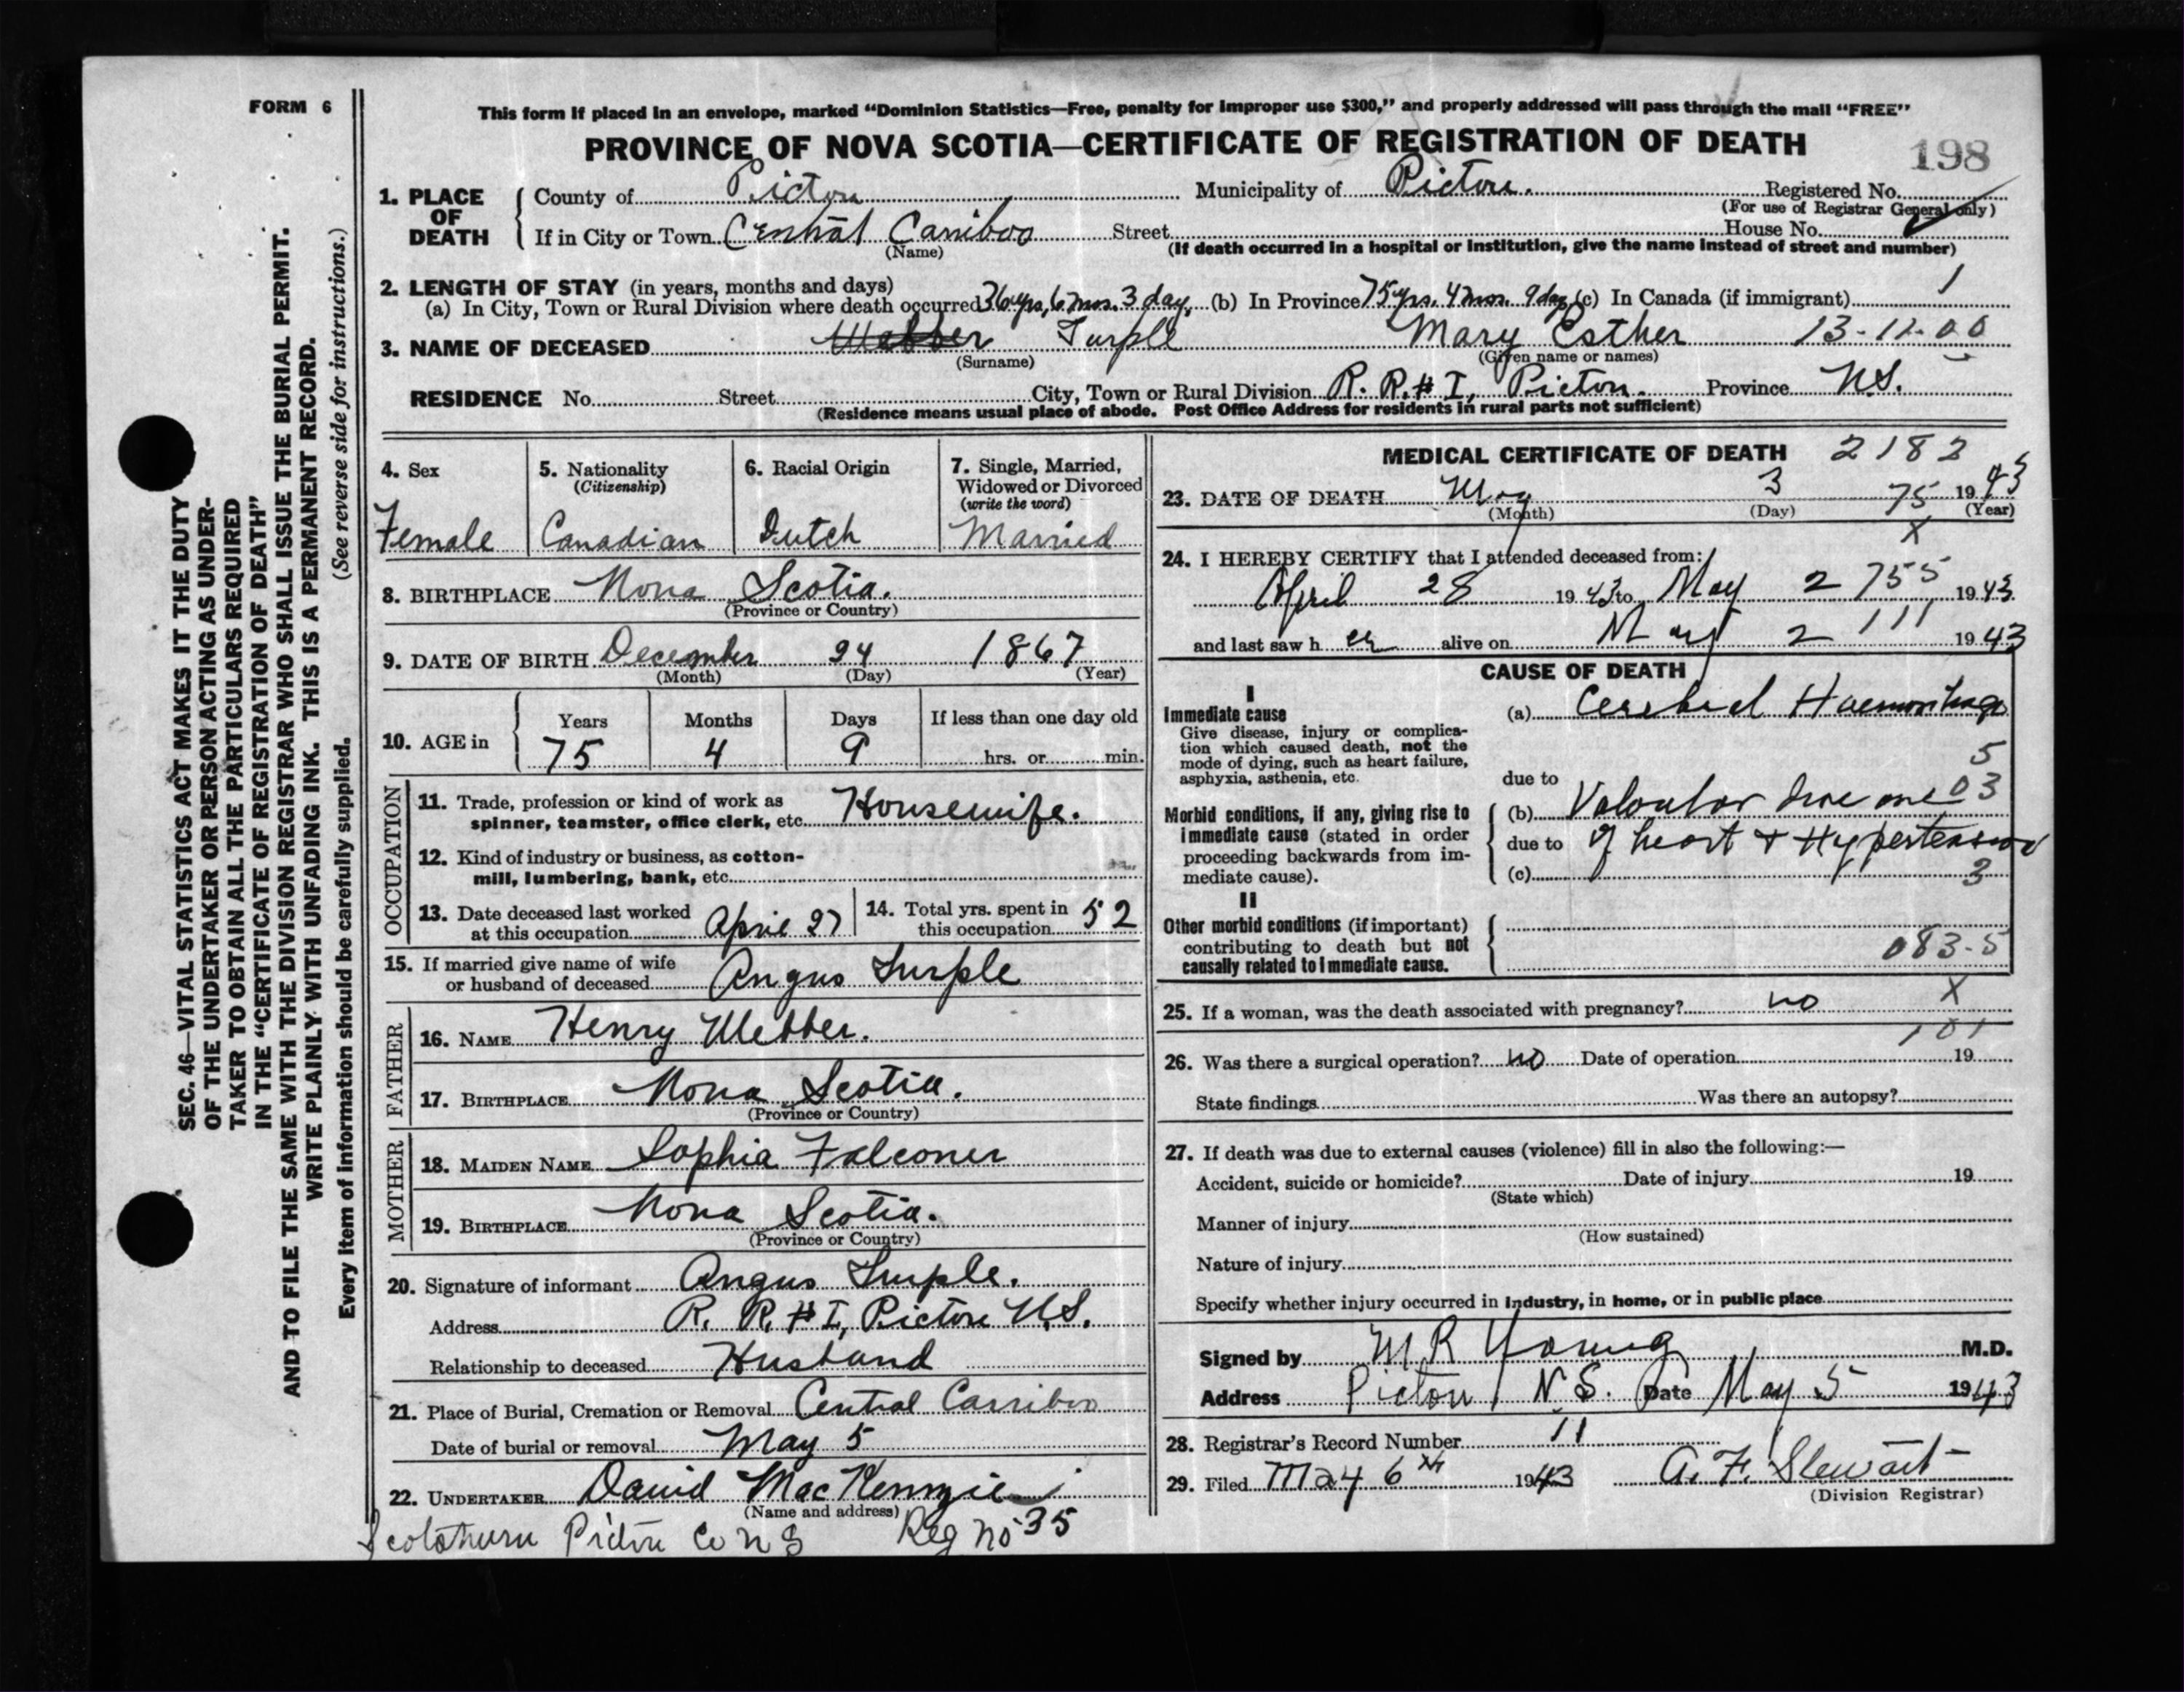 FORM 6
This form if placed in an envelope, marked "Dominion Statistics—Free, penalty for improper use $300," and properly addressed will pass through the mail "FREE"
PROVINCE OF NOVA SCOTIA—CERTIFICATE OF REGISTRATION OF DEATH
198
1. PLACE OF DEATH County of Pictou Municipality of Pictou. Registered No.
(For use of Registrar General only)
If in City or Town Central Carriboo Street House No.
(Name) (If death occurred in a hospital or institution, give the name instead of street and number)
2. LENGTH OF STAY (in years, months and days)
(a) In City, Town or Rural Division where death occurred 36 yrs, 6 mos. 3 day, (b) In Province 75 yrs. 4 mos. 9 day, (c) In Canada (if immigrant) 1
3. NAME OF DECEASED Webber Turple Mary Esther 13-11-00
(Surname) (Given name or names)
RESIDENCE No. Street City, Town or Rural Division R. R. # 1, Pictou. Province N.S.
(Residence means usual place of abode. Post Office Address for residents in rural parts not sufficient)
4. Sex
Female
5. Nationality
(Citizenship)
Canadian
6. Racial Origin
Dutch
7. Single, Married,
Widowed or Divorced
(write the word)
Married
8. BIRTHPLACE Nova Scotia.
(Province or Country)
9. DATE OF BIRTH December 24 1867
(Month) (Day) (Year)
10. AGE in Years Months Days If less than one day old
75 4 9 hrs. or min.
OCCUPATION
11. Trade, profession or kind of work as
spinner, teamster, office clerk, etc. Housewife.
12. Kind of industry or business, as cotton-
mill, lumbering, bank, etc.
13. Date deceased last worked
at this occupation April 27
14. Total yrs. spent in
this occupation 52
15. If married give name of wife
or husband of deceased Angus Turple
FATHER
16. NAME Henry Webber.
17. BIRTHPLACE Nova Scotia.
(Province or Country)
MOTHER
18. MAIDEN NAME Sophia Falconer
19. BIRTHPLACE Nova Scotia.
(Province or Country)
20. Signature of informant Angus Turple.
Address R. R. # 1, Pictou N.S.
Relationship to deceased Husband
21. Place of Burial, Cremation or Removal Central Carriboo
Date of burial or removal May 5
22. UNDERTAKER David MacKenzie
(Name and address)
Scotsburn Pictou Co N S Reg no 35
MEDICAL CERTIFICATE OF DEATH 2182
23. DATE OF DEATH May 3 75 1943
(Month) (Day) (Year)
X
24. I HEREBY CERTIFY that I attended deceased from:
April 28 1943 to May 2 755 1943
and last saw h er alive on May 2 111 1943
CAUSE OF DEATH
I
Immediate cause
Give disease, injury or complica-
tion which caused death, not the
mode of dying, such as heart failure,
asphyxia, asthenia, etc.
(a) Cerebral Haemorrhage
5
due to
Morbid conditions, if any, giving rise to
immediate cause (stated in order
proceeding backwards from im-
mediate cause).
(b) 03
due to of heart & Hypertension
(c) 3
II
Other morbid conditions (if important)
contributing to death but not
causally related to immediate cause.
083-5
25. If a woman, was the death associated with pregnancy? no X
101
26. Was there a surgical operation? no Date of operation 19
State findings Was there an autopsy?
27. If death was due to external causes (violence) fill in also the following:—
Accident, suicide or homicide? Date of injury 19
(State which)
Manner of injury
(How sustained)
Nature of injury
Specify whether injury occurred in industry, in home, or in public place
Signed by M R Young M.D.
Address Pictou N.S. Date May 5 1943
28. Registrar's Record Number 11
29. Filed May 6th 1943 A. F. Stewart
(Division Registrar)
SEC. 46—VITAL STATISTICS ACT MAKES IT THE DUTY
OF THE UNDERTAKER OR PERSON ACTING AS UNDER-
TAKER TO OBTAIN ALL THE PARTICULARS REQUIRED
IN THE "CERTIFICATE OF REGISTRATION OF DEATH"
AND TO FILE THE SAME WITH THE DIVISION REGISTRAR WHO SHALL ISSUE THE BURIAL PERMIT.
WRITE PLAINLY WITH UNFADING INK. THIS IS A PERMANENT RECORD.
Every item of information should be carefully supplied. (See reverse side for instructions.)